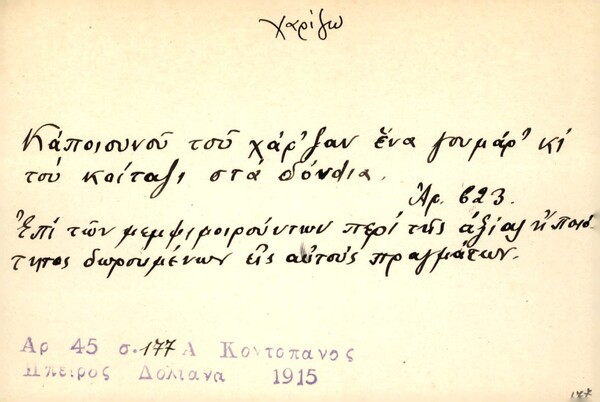 χαρίζω
Κάποιουνοῦ τοῦ χάρ'ζαν ἕνα γουμάρ' κὶ
τοὺ κοίταζι στὰ δόνδια.
Ἀρ. 623.
Ἐπὶ τῶν μεμψιμοιρούντων περὶ τῆς ἀξίας ἢ ποιό-
τητος δωρουμένων εἰς αὐτοὺς πραγμάτων.
Αρ 45 σ. 177 Α Κοντοπανος
Ηπειρος Δολιανα 1915